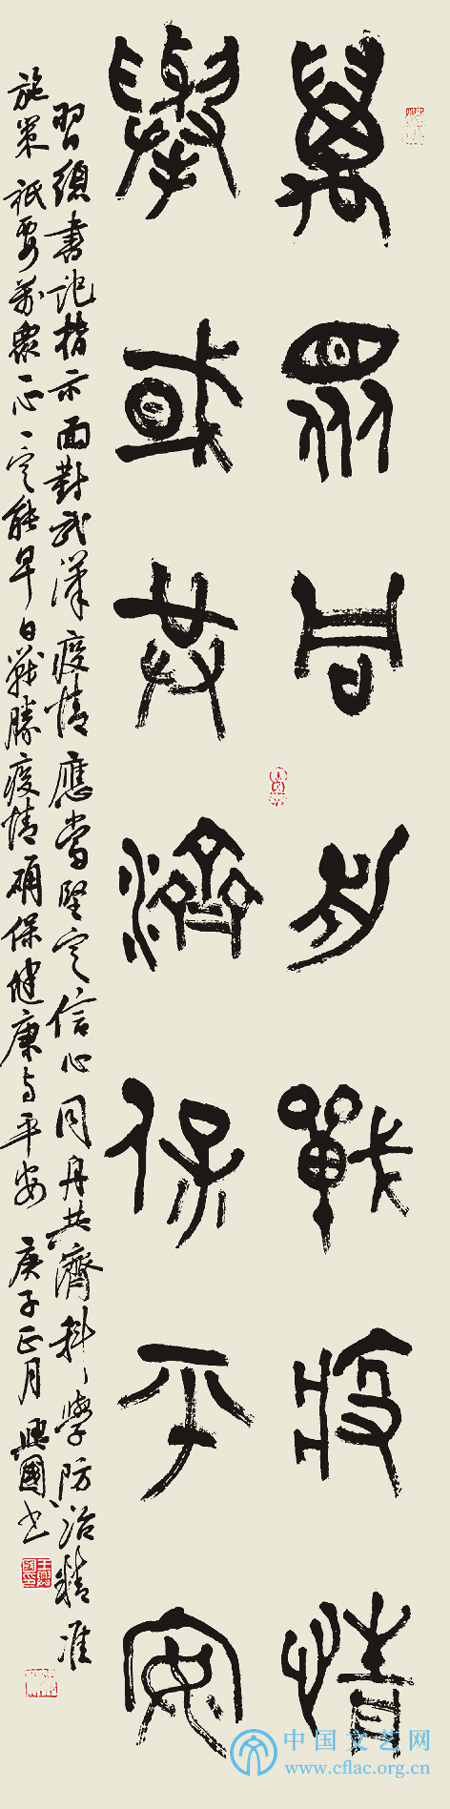 萬眾同力戰疫情
舉或共濟保平安
習總書記指示面對武漢疫情應當堅定信心同舟共濟科學防治精准
施策祇要萬眾一心一定能早日戰勝疫情确保健康与平安 庚子正月興國书
中国文艺网
www.cflac.org.cn